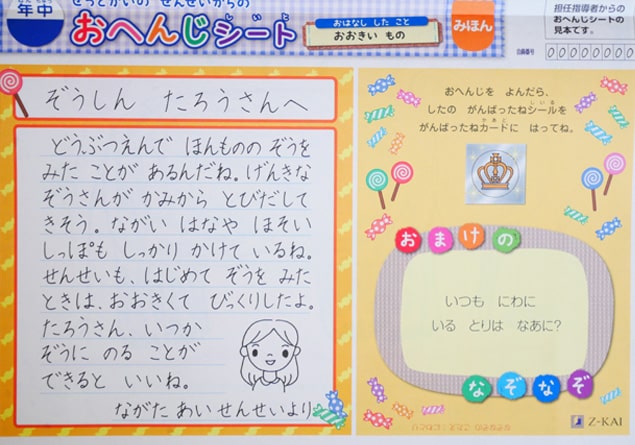 年中
ぜっとかいの せんせいからの
おへんじシート
おはなし した こと
おおきい もの
みほん
担任指導者からの
おへんじシートの
見本です。
会員番号 00000000
ぞうしん たろうさんへ
どうぶつえんで ほんものの ぞうを
みた ことが あるんだね。げんきな
ぞうさんが かみから とびだして
きそう。ながい はなや ほそい
しっぽも しっかり かけて いるね。
せんせいも、はじめて ぞうを みた
ときは、おおきくて びっくりしたよ。
たろうさん、いつか
ぞうに のる ことが
できると いいね。
ながた あい せんせいより
おへんじを よんだら、
したの がんばったねシールを
がんばったねカードに はってね。
おまけの
いつも にわに
いる とりは なあに?
なぞなぞ
Z-KAI